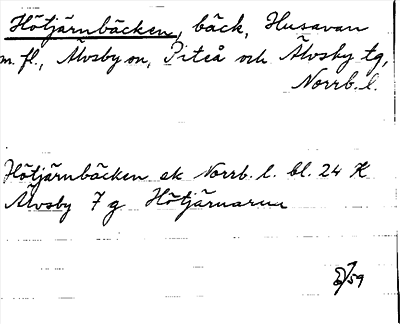 Hötjärnbäcken, bäck, Husavan
m. fl., Älvsby sn, Piteå och Älvsby tg,
Norrb. l.
Hötjärnbäcken ek Norrb. l. bl. 24 K
Älvsby 7 g Hötjärnarna
59